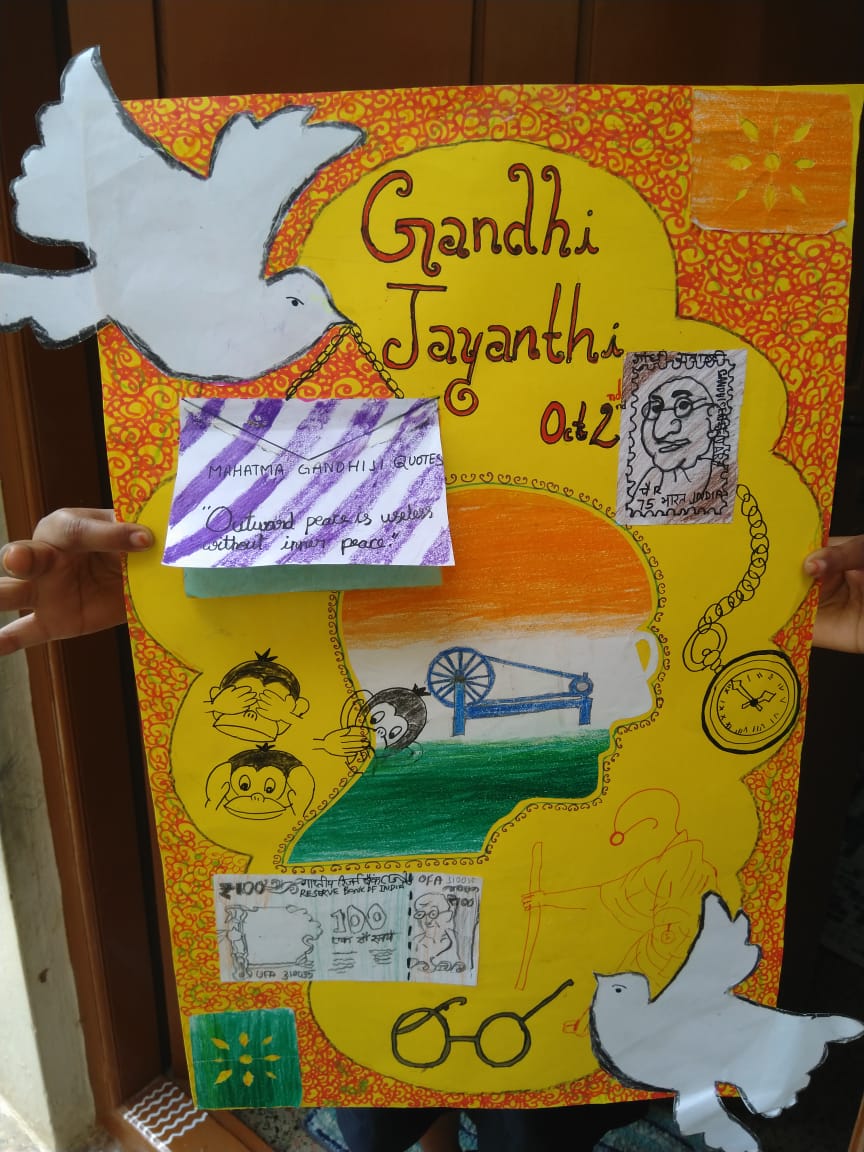 Gandhi
Jayanthi
Oct 2nd
MAHATMA GANDHIJI QUOTES
"Outward peace is useless
without inner peace."
गांधी
GANDHI
75 भारत INDIA
₹100
RESERVE BANK OF INDIA
100
एक सौ रुपये
100